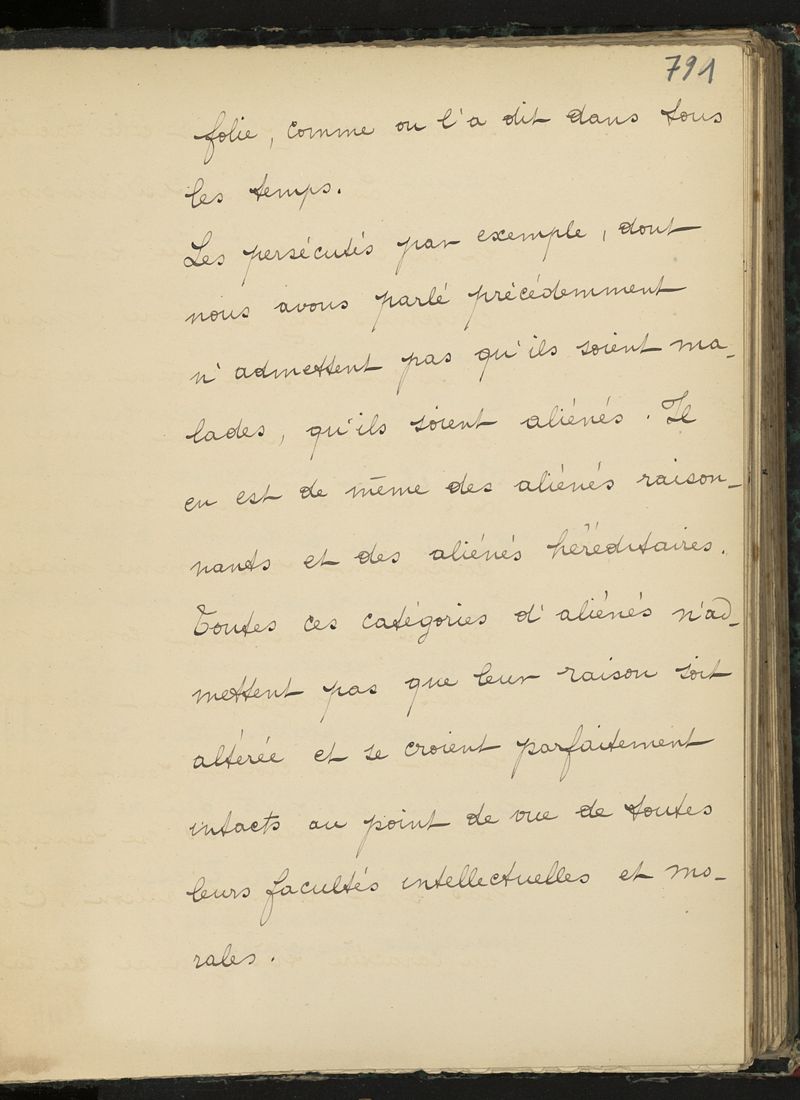 791
folie, comme on l'a dit dans tous
les temps.
Les persécutés par exemple, dont
nous avons parlé précédemment
n'admettent pas qu'ils soient ma-
lades, qu'ils soient aliénés. Il
en est de même des aliénés raison-
nants et des aliénés héréditaires.
Toutes ces catégories d'aliénés n'ad-
mettent pas que leur raison soit
altérée et se croient parfaitement
intacts au point de vue de toutes
leurs facultés intellectuelles et mo-
rales.